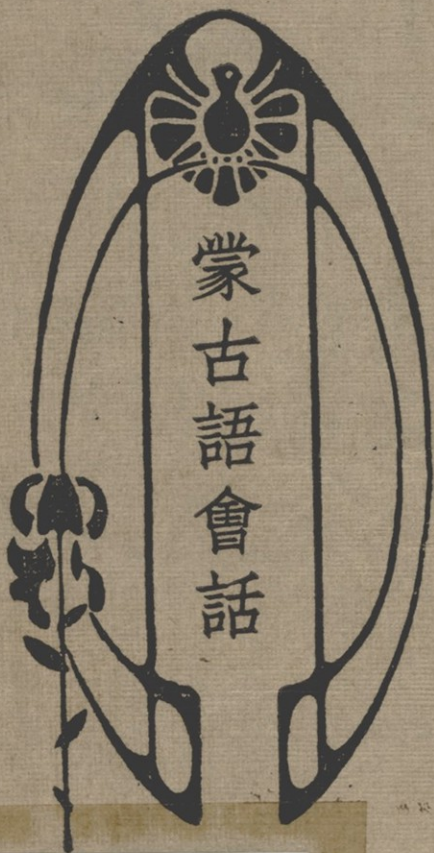 蒙古語會話